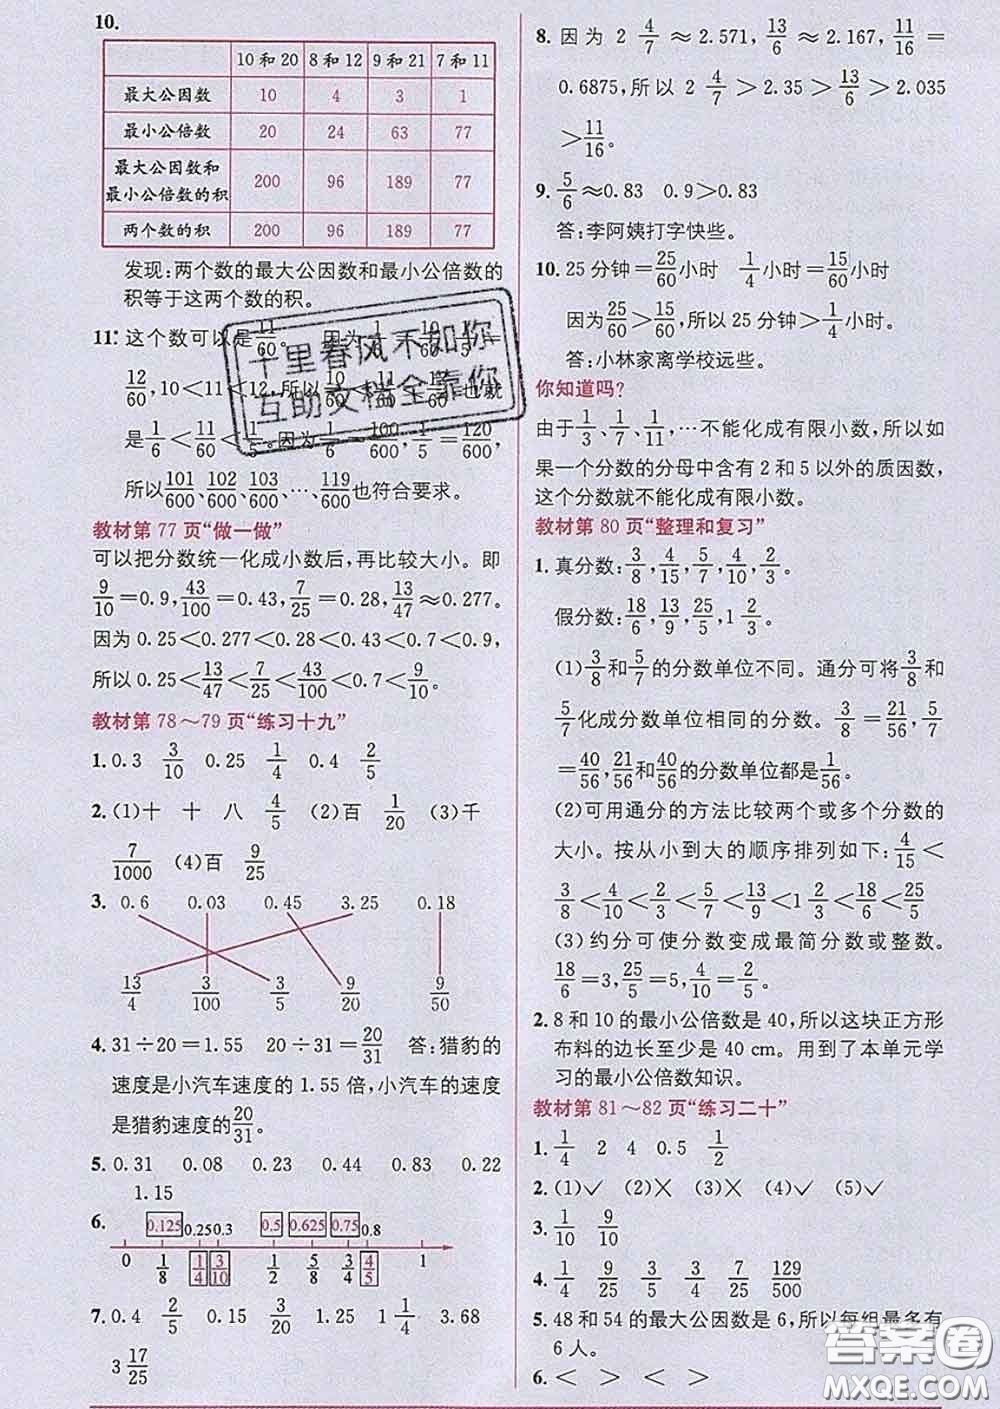 10.
10 和 20 8 和 12 9 和 21 7 和 11
最大公因数 10 4 3 1
最小公倍数 20 24 63 77
最大公因数和
最小公倍数的积 200 96 189 77
两个数的积 200 96 189 77
发现:两个数的最大公因数和最小公倍数的
积等于这两个数的积。
11. 这个数可以是 11/60。 因为 1/6 = 10/60, 1/5 =
12/60, 10＜11＜12, 所以 10/60＜11/60＜12/60, 也就
是 1/6＜11/60＜1/5。因为 1/6＝100/600, 1/5＝120/600,
所以 101/600、102/600、103/600、…、119/600 也符合要求。
千里春风不如你
互助文档全靠你
教材第 77 页“做一做”
可以把分数统一化成小数后,再比较大小。即
9/10＝0.9, 43/100＝0.43, 7/25＝0.28, 13/47≈0.277。
因为 0.25＜0.277＜0.28＜0.43＜0.7＜0.9,
所以 0.25＜13/47＜7/25＜43/100＜0.7＜9/10。
教材第 78～79 页“练习十九”
1. 0.3 3/10 0.25 1/4 0.4 2/5
2. (1)十 十 八 4/5 (2)百 1/20 (3)千
7/1000 (4)百 9/25
3. 0.6 0.03 0.45 3.25 0.18
13/4 3/100 3/5 9/20 9/50
4. 31÷20＝1.55 20÷31＝20/31 答:猎豹的
速度是小汽车速度的 1.55 倍,小汽车的速度
是猎豹速度的 20/31。
5. 0.31 0.08 0.23 0.44 0.83 0.22
1.15
6. 0.125 0.25 0.3 0.5 0.625 0.75 0.8
0 1/8 1/4 3/10 1/2 5/8 3/4 4/5 1
7. 0.4 2/5 0.15 3/20 1 1/4 3.68
3 17/25
8. 因为 2 4/7≈2.571, 13/6≈2.167, 11/16＝
0.6875,所以 2 4/7＞2.35＞13/6＞2.035
＞11/16。
9. 5/6≈0.83 0.9＞0.83
答:李阿姨打字快些。
10. 25 分钟＝25/60小时 1/4小时＝15/60小时
因为 25/60＞15/60,所以 25 分钟＞1/4小时。
答:小林家离学校远些。
你知道吗?
由于 1/3、1/7、1/11,…不能化成有限小数,所以如
果一个分数的分母中含有 2 和 5 以外的质因数,
这个分数就不能化成有限小数。
教材第 80 页“整理和复习”
1. 真分数: 3/8, 4/15, 5/7, 4/10, 2/3。
假分数: 18/6, 13/9, 25/5, 1 2/3。
(1) 3/8和5/7的分数单位不同。通分可将3/8和
5/7化成分数单位相同的分数。3/8＝21/56, 5/7
＝40/56, 21/56和40/56的分数单位都是1/56。
(2)可用通分的方法比较两个或多个分数的
大小。按从小到大的顺序排列如下: 4/15＜
3/8＜4/10＜2/3＜5/7＜13/9＜1 2/3＜18/6＜25/5
(3)约分可使分数变成最简分数或整数。
18/6＝3, 25/5＝5, 4/10＝2/5。
2. 8 和 10 的最小公倍数是 40,所以这块正方形
布料的边长至少是 40 cm。用到了本单元学
习的最小公倍数知识。
教材第 81～82 页“练习二十”
1. 1/4 2 4 0.5 1/2
2. (1)✓ (2)✕ (3)✕ (4)✓ (5)✓
3. 1/10 9/10
4. 1/4 9/25 3/5 3/4 7/25 129/500
5. 48 和 54 的最大公因数是 6,所以每组最多有
6 人。
6. ＜ ＞ ＜ ＞
答案圈
MXQE.COM